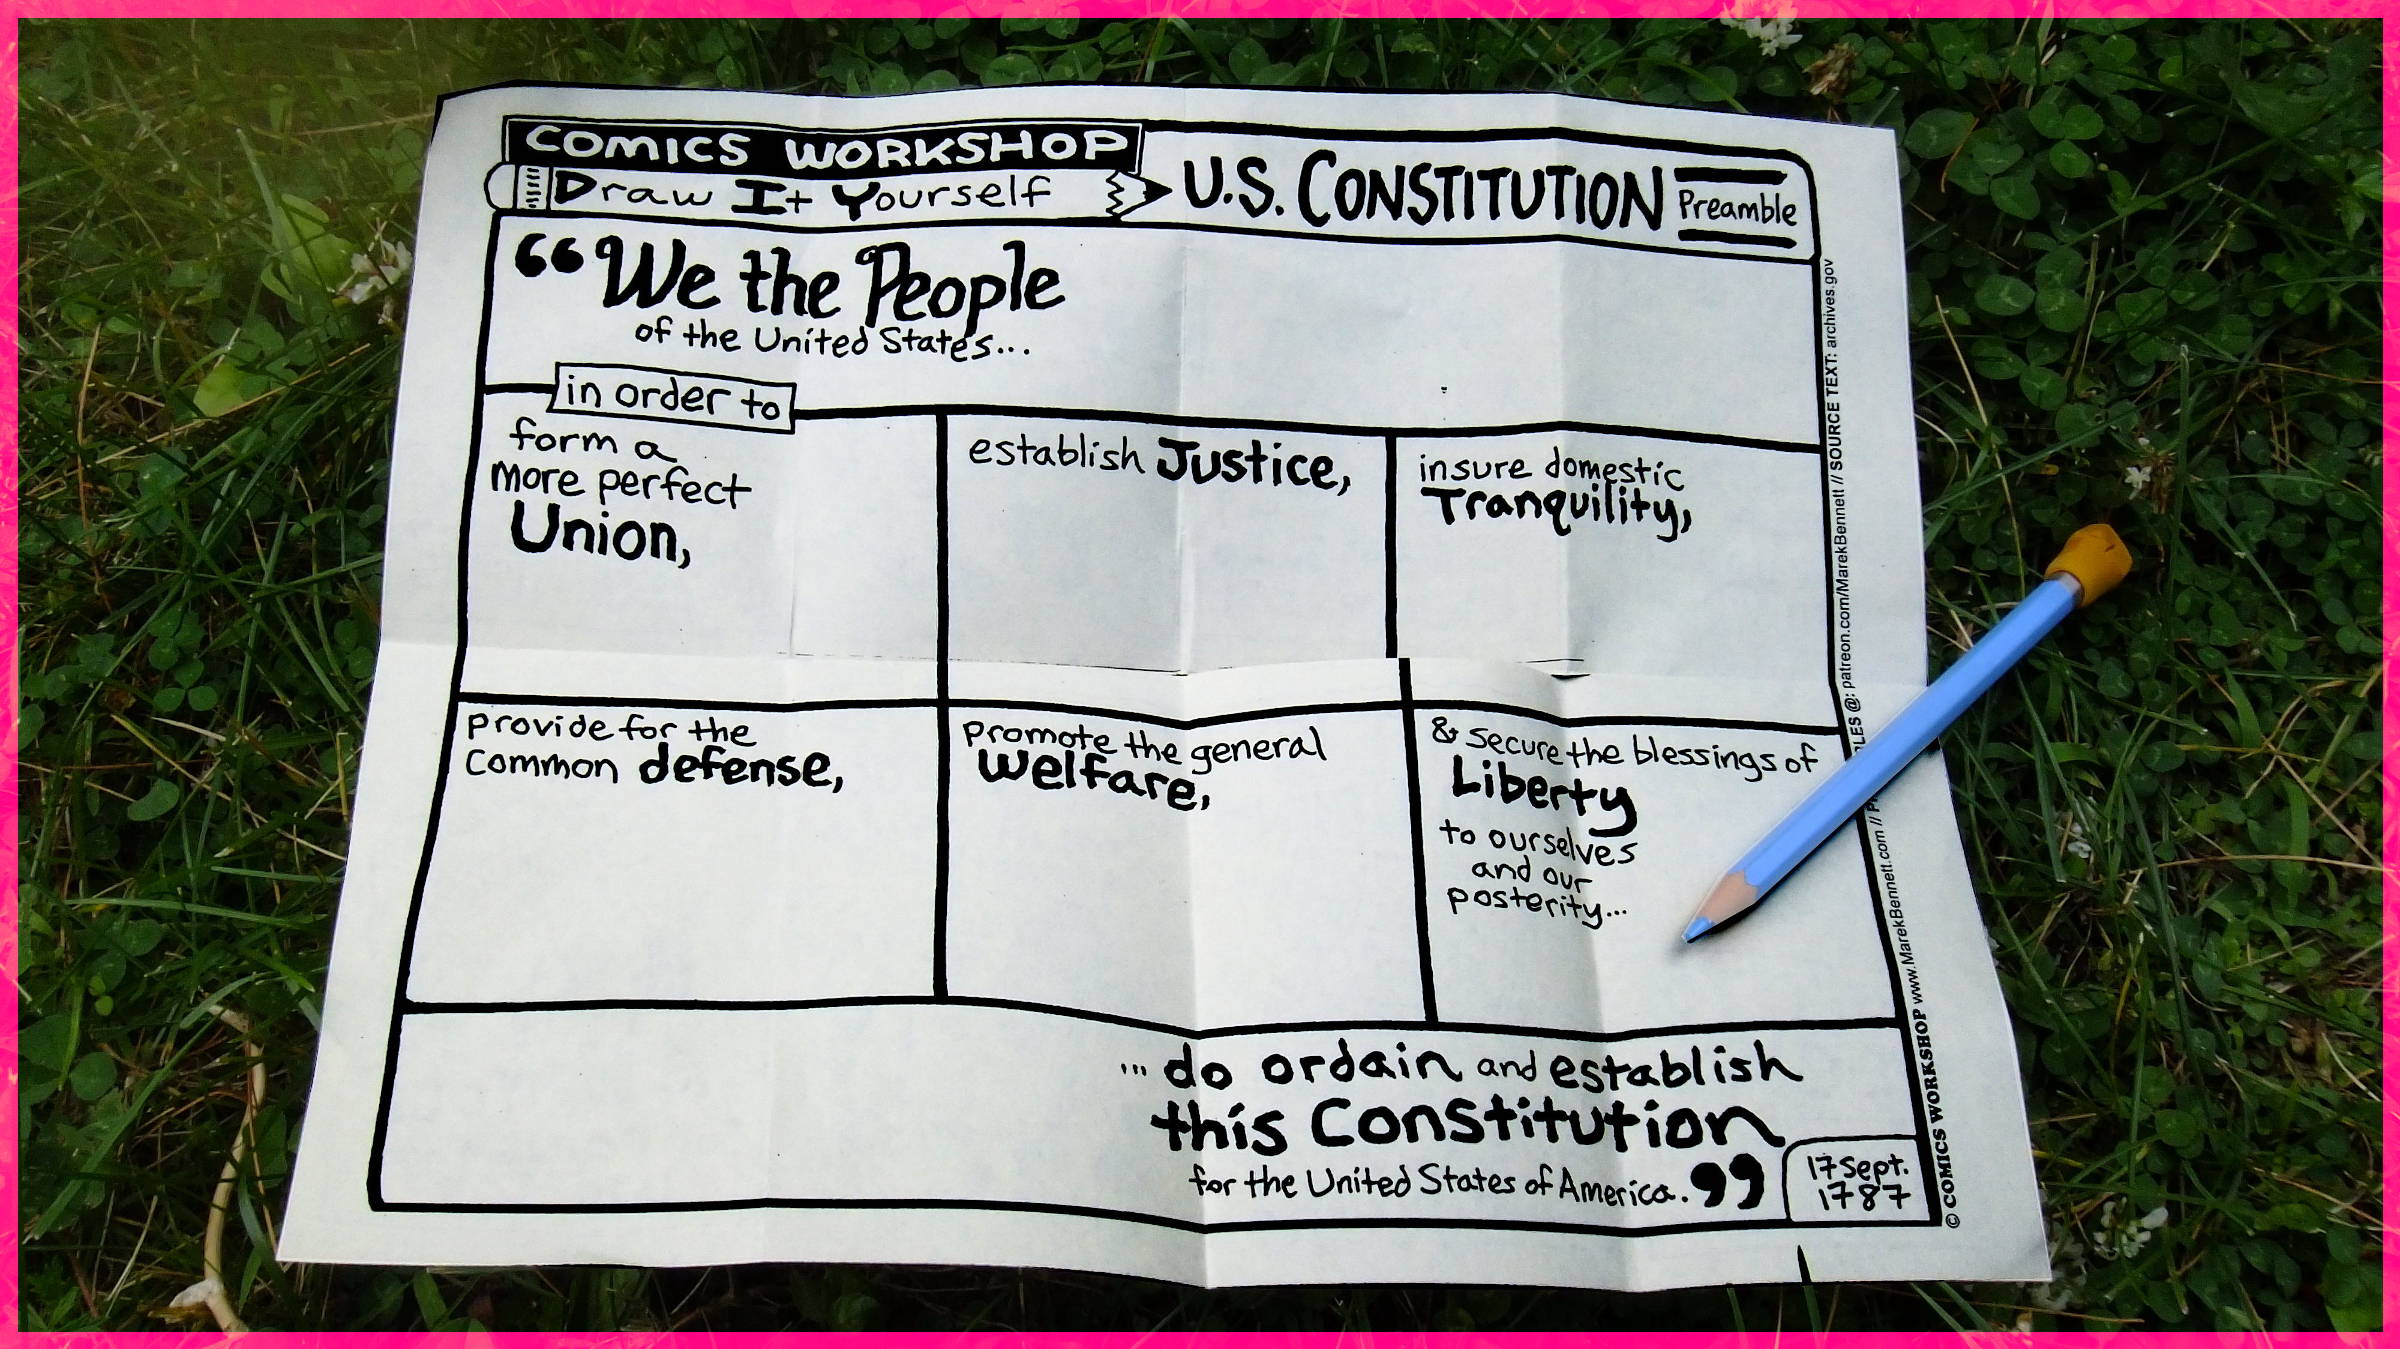 COMICS WORKSHOP
Draw It Yourself
U.S. CONSTITUTION
Preamble
“We the People
of the United States...
in order to
form a
more perfect
Union,
establish Justice,
insure domestic
Tranquility,
provide for the
common defense,
promote the general
welfare,
& secure the blessings of
Liberty
to ourselves
and our
posterity...
...do ordain and establish
this Constitution
for the United States of America.”
17 Sept.
1787
© COMICS WORKSHOP www.MarekBennett.com // @: patreon.com/MarekBennett // SOURCE TEXT: archives.gov